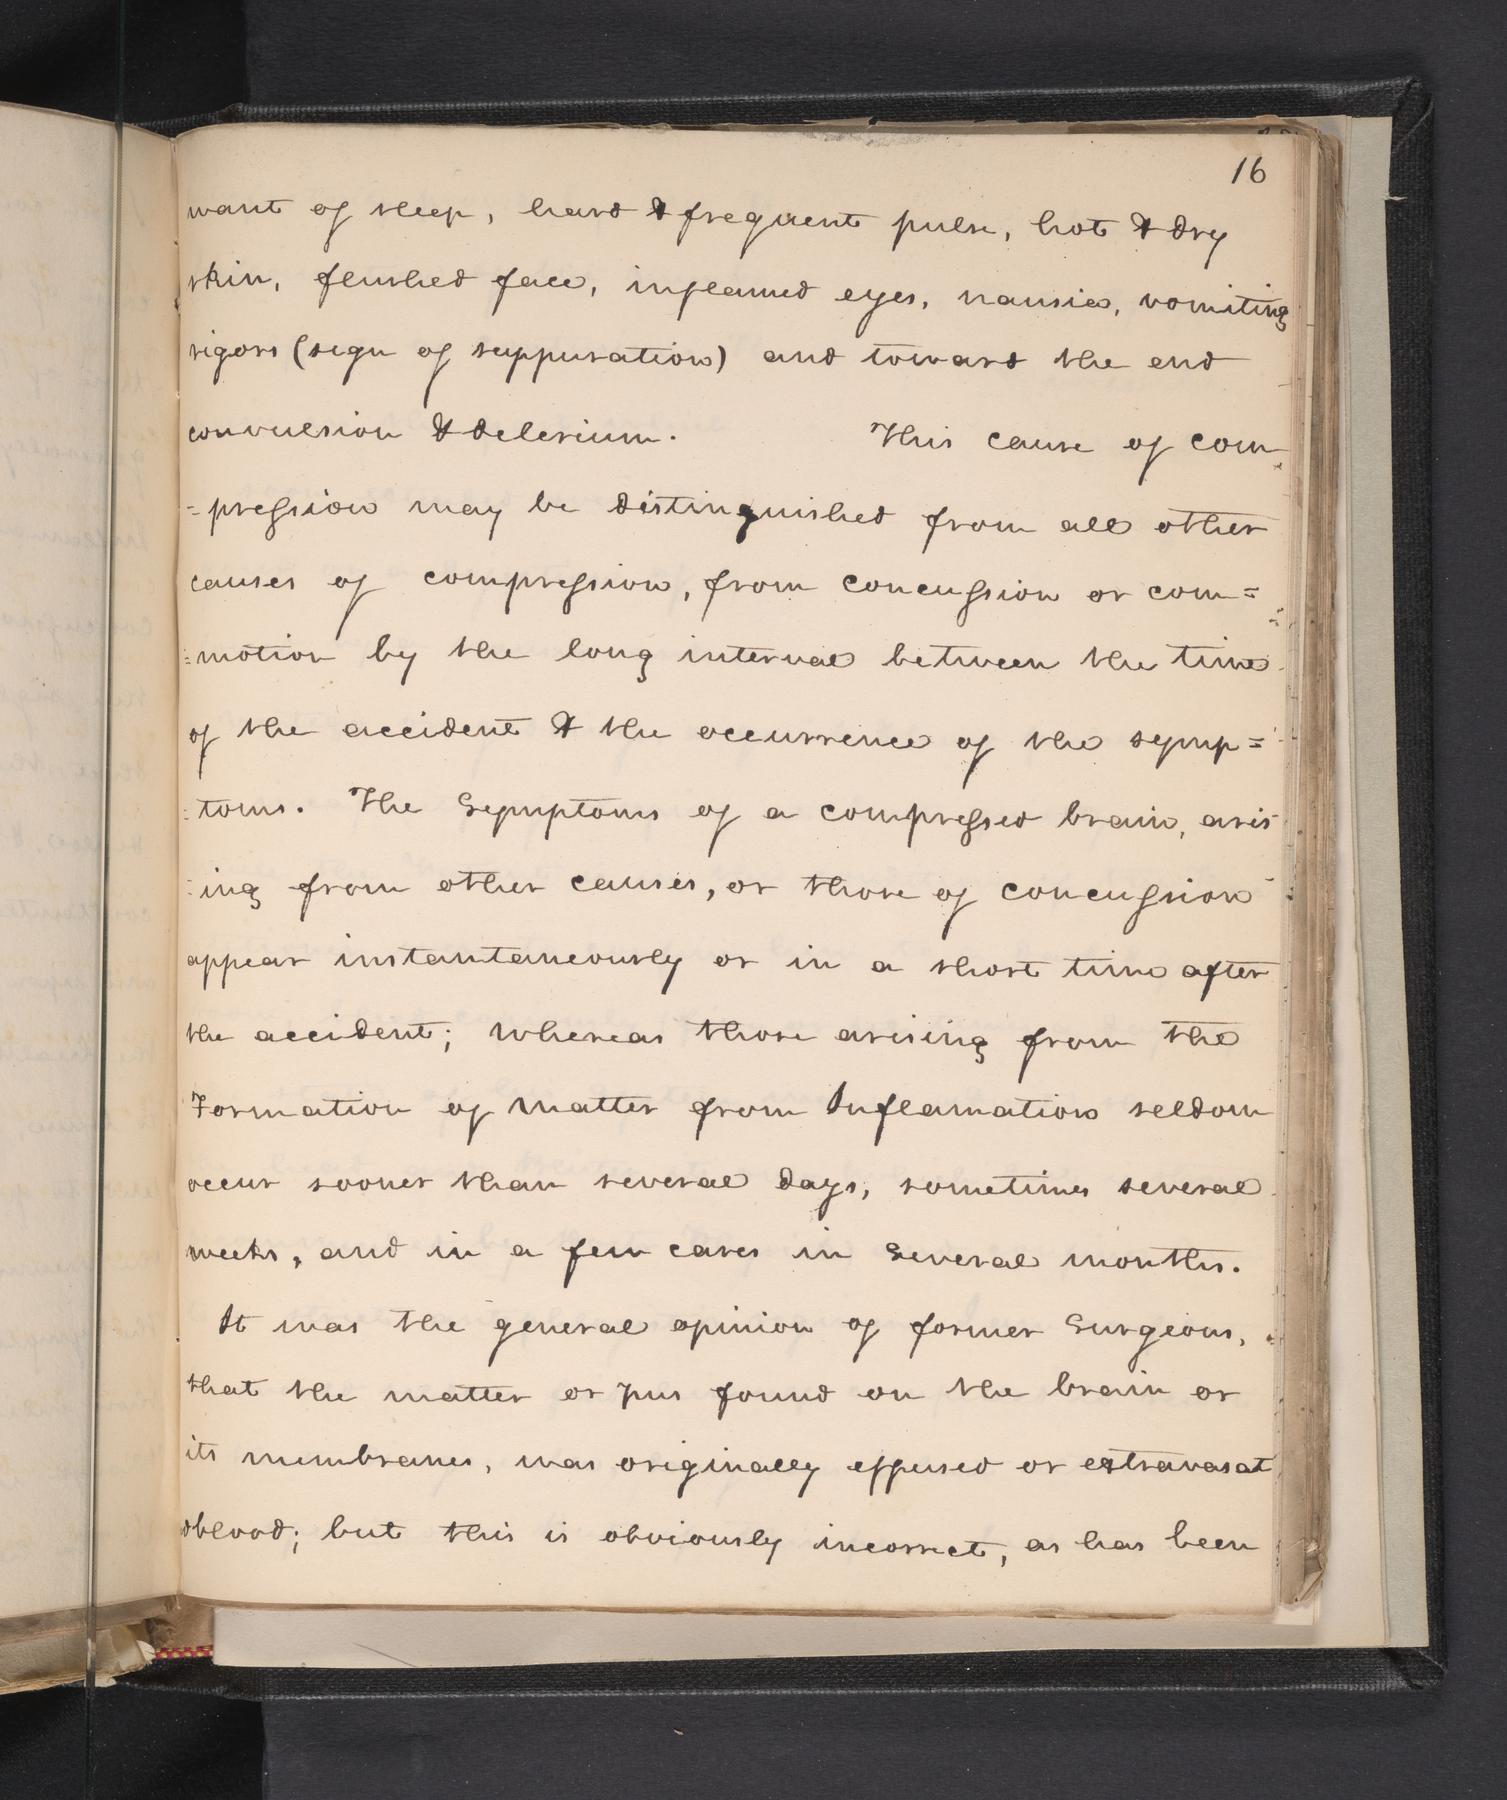 16
want of sleep, hard & frequent pulse, hot & dry
skin, flushed face, inflamed eyes, nausia, vomiting
rigors (sign of suppuration) and toward the end
convulsion & delerium. This cause of com
=pression may be distinguished from all other
causes of compression, from concussion or com=
=motion by the long interval between the time
of the accident & the occurrence of the symp=
=toms. The Symptoms of a compressed brain, aris
=ing from other causes, or those of concussion
appear instantaneously or in a short time after
the accident; whereas those arising from the
Formation of matter from Inflamation seldom
occur sooner than several days, sometimes several
weeks, and in a few cases in several months.
It was the general opinion of former Surgeons,
that the matter or pus found on the brain or
its membranes, was originally effused or extravasat
blood; but this is obviously incorrect, as has been